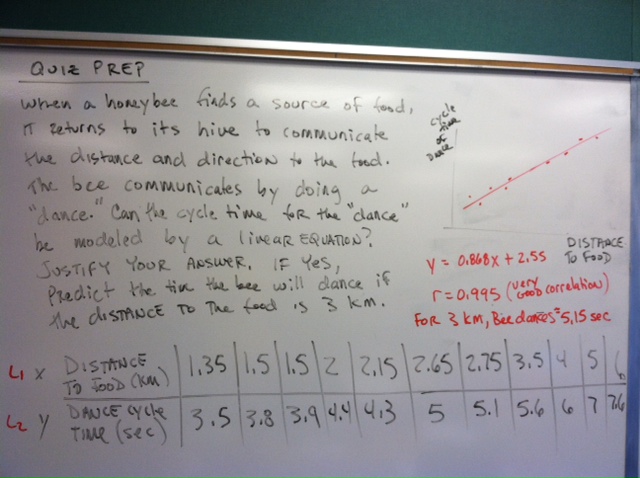 QUIZ PREP
When a honeybee finds a source of food,
IT returns to its hive to communicate
the distance and direction to the food.
The bee communicates by doing a
"dance." Can the cycle time for the "dance"
be modeled by a LINEAR EQUATION?
JUSTIFY YOUR ANSWER. IF YES,
Predict the time the bee will dance if
the DISTANCE TO THE food is 3 km.
cycle
time
of
Dance
DISTANCE
TO FOOD
y = 0.868x + 2.55
r = 0.995 (very good correlation)
FOR 3 KM, Bee dances = 5.15 sec
L1 X DISTANCE TO FOOD (km) 1.35 1.5 1.5 2 2.15 2.65 2.75 3.5 4 5 6
L2 Y DANCE CYCLE TIME (sec) 3.5 3.8 3.9 4.4 4.3 5 5.1 5.6 6 7 7.6